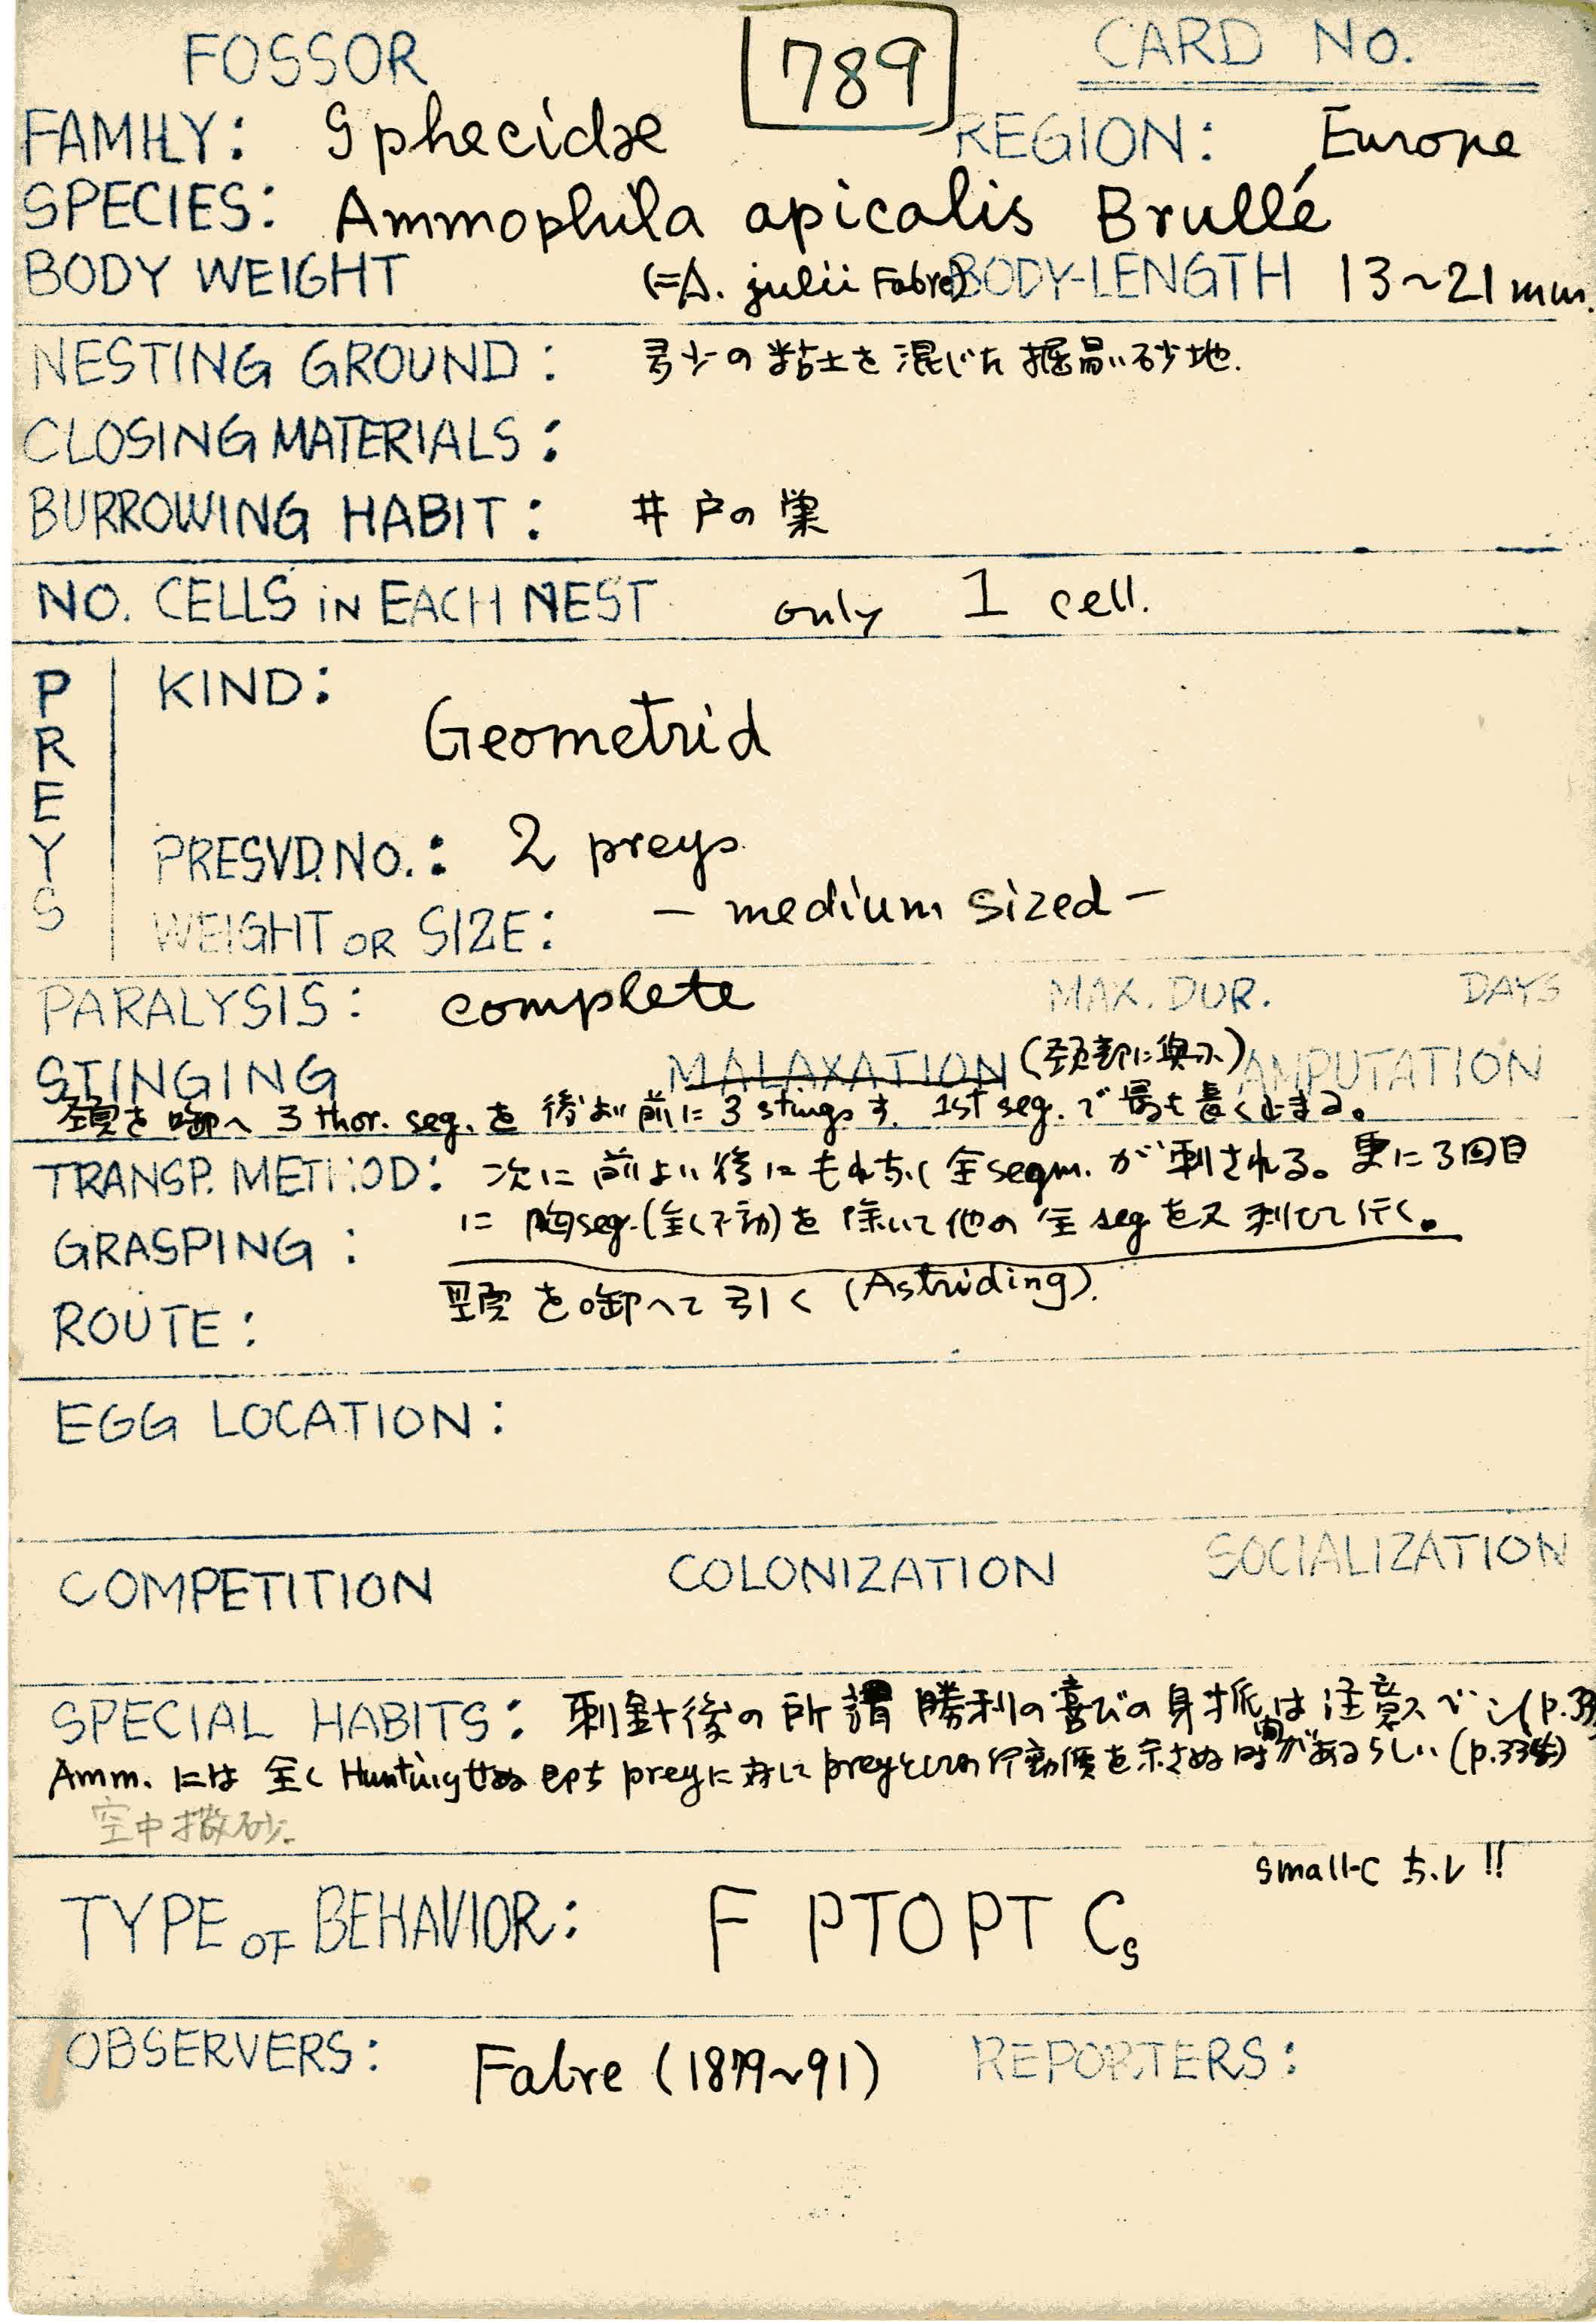 FOSSOR 789 CARD No.
FAMILY: Sphecidae REGION: Europe
SPECIES: Ammophila apicalis Brullé
BODY WEIGHT (=A. julii Fabre) BODY-LENGTH 13~21mm.
NESTING GROUND: 多少の粘土を混じた掘易い砂地.
CLOSING MATERIALS:
BURROWING HABIT: 井戸の巣
NO. CELLS iN EACH NEST only 1 cell.
PREYS
KIND:
Geometrid
PRESVD.NO.: 2 preys
WEIGHT OR SIZE: — medium sized —
PARALYSIS: complete MAX. DUR. DAYS
STINGING MALAXATION (頚部に興示) AMPUTATION
頭を啣へ 3 thor. seg. を後より前に 3 stings す. 1st seg. で最も長く止まる。
TRANSP. METHOD: 次に前より後に 全segm. が刺される。更に3回目
に胸seg.(全く不動)を除いて他の全segを又刺して行く。
GRASPING:
頭を啣へて引く (Astriding).
ROUTE:
EGG LOCATION:
COMPETITION COLONIZATION SOCIALIZATION
SPECIAL HABITS: 刺針後の所謂勝利の喜びの身振は注意スベシ(p.33
Amm. には全くHuntingせぬ preyに対してpreyとしての行動価を示さぬ時間があるらしい (p.334)
空中撒砂.
small-C
TYPE OF BEHAVIOR: F PTOPT Cs
OBSERVERS: Fabre (1879~91) REPORTERS: